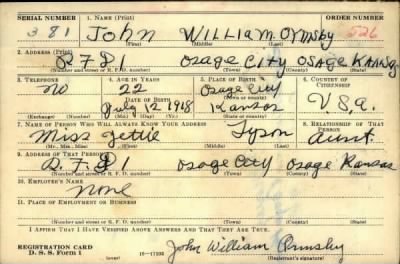 SERIAL NUMBER 1. NAME (Print) ORDER NUMBER
381 JOHN WILLIAM ORMSBY 526
(First) (Middle) (Last)
2. ADDRESS (Print)
R F D 1 OSAGE CITY OSAGE KANSAS
(Number and street or R. F. D. number) (Town) (County) (State)
3. TELEPHONE 4. AGE IN YEARS 5. PLACE OF BIRTH 6. COUNTRY OF CITIZENSHIP
NO 22 Osage City
DATE OF BIRTH (Town or county)
July 12 1918 Kansas U.S.A.
(Exchange) (Number) (Mo.) (Day) (Yr.) (State or country)
7. NAME OF PERSON WHO WILL ALWAYS KNOW YOUR ADDRESS 8. RELATIONSHIP OF THAT PERSON
Miss Tyson Aunt
(Mr., Mrs., Miss) (First) (Middle) (Last)
9. ADDRESS OF THAT PERSON
R. F. D 1 Osage City Osage Kansas
(Number and street or R. F. D. number) (Town) (County) (State)
10. EMPLOYER'S NAME
None
11. PLACE OF EMPLOYMENT OR BUSINESS
(Number and street or R. F. D. number) (Town) (County) (State)
I AFFIRM THAT I HAVE VERIFIED ABOVE ANSWERS AND THAT THEY ARE TRUE.
REGISTRATION CARD
D. S. S. Form 1 16—17105 John William Ormsby